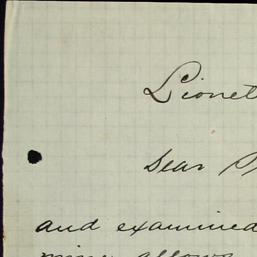 Lionet
Dear
and examined
mine allows